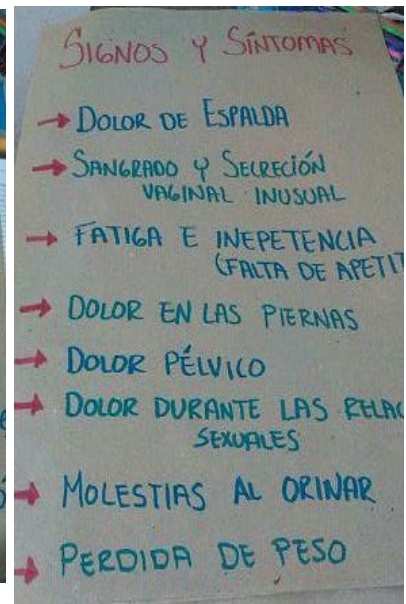 SIGNOS Y SÍNTOMAS
→ DOLOR DE ESPALDA
→ SANGRADO Y SECRECIÓN
VAGINAL INUSUAL
→ FATIGA E INEPETENCIA
(FALTA DE APETIT
→ DOLOR EN LAS PIERNAS
→ DOLOR PÉLVICO
→ DOLOR DURANTE LAS RELAC
SEXUALES
→ MOLESTIAS AL ORINAR
→ PERDIDA DE PESO